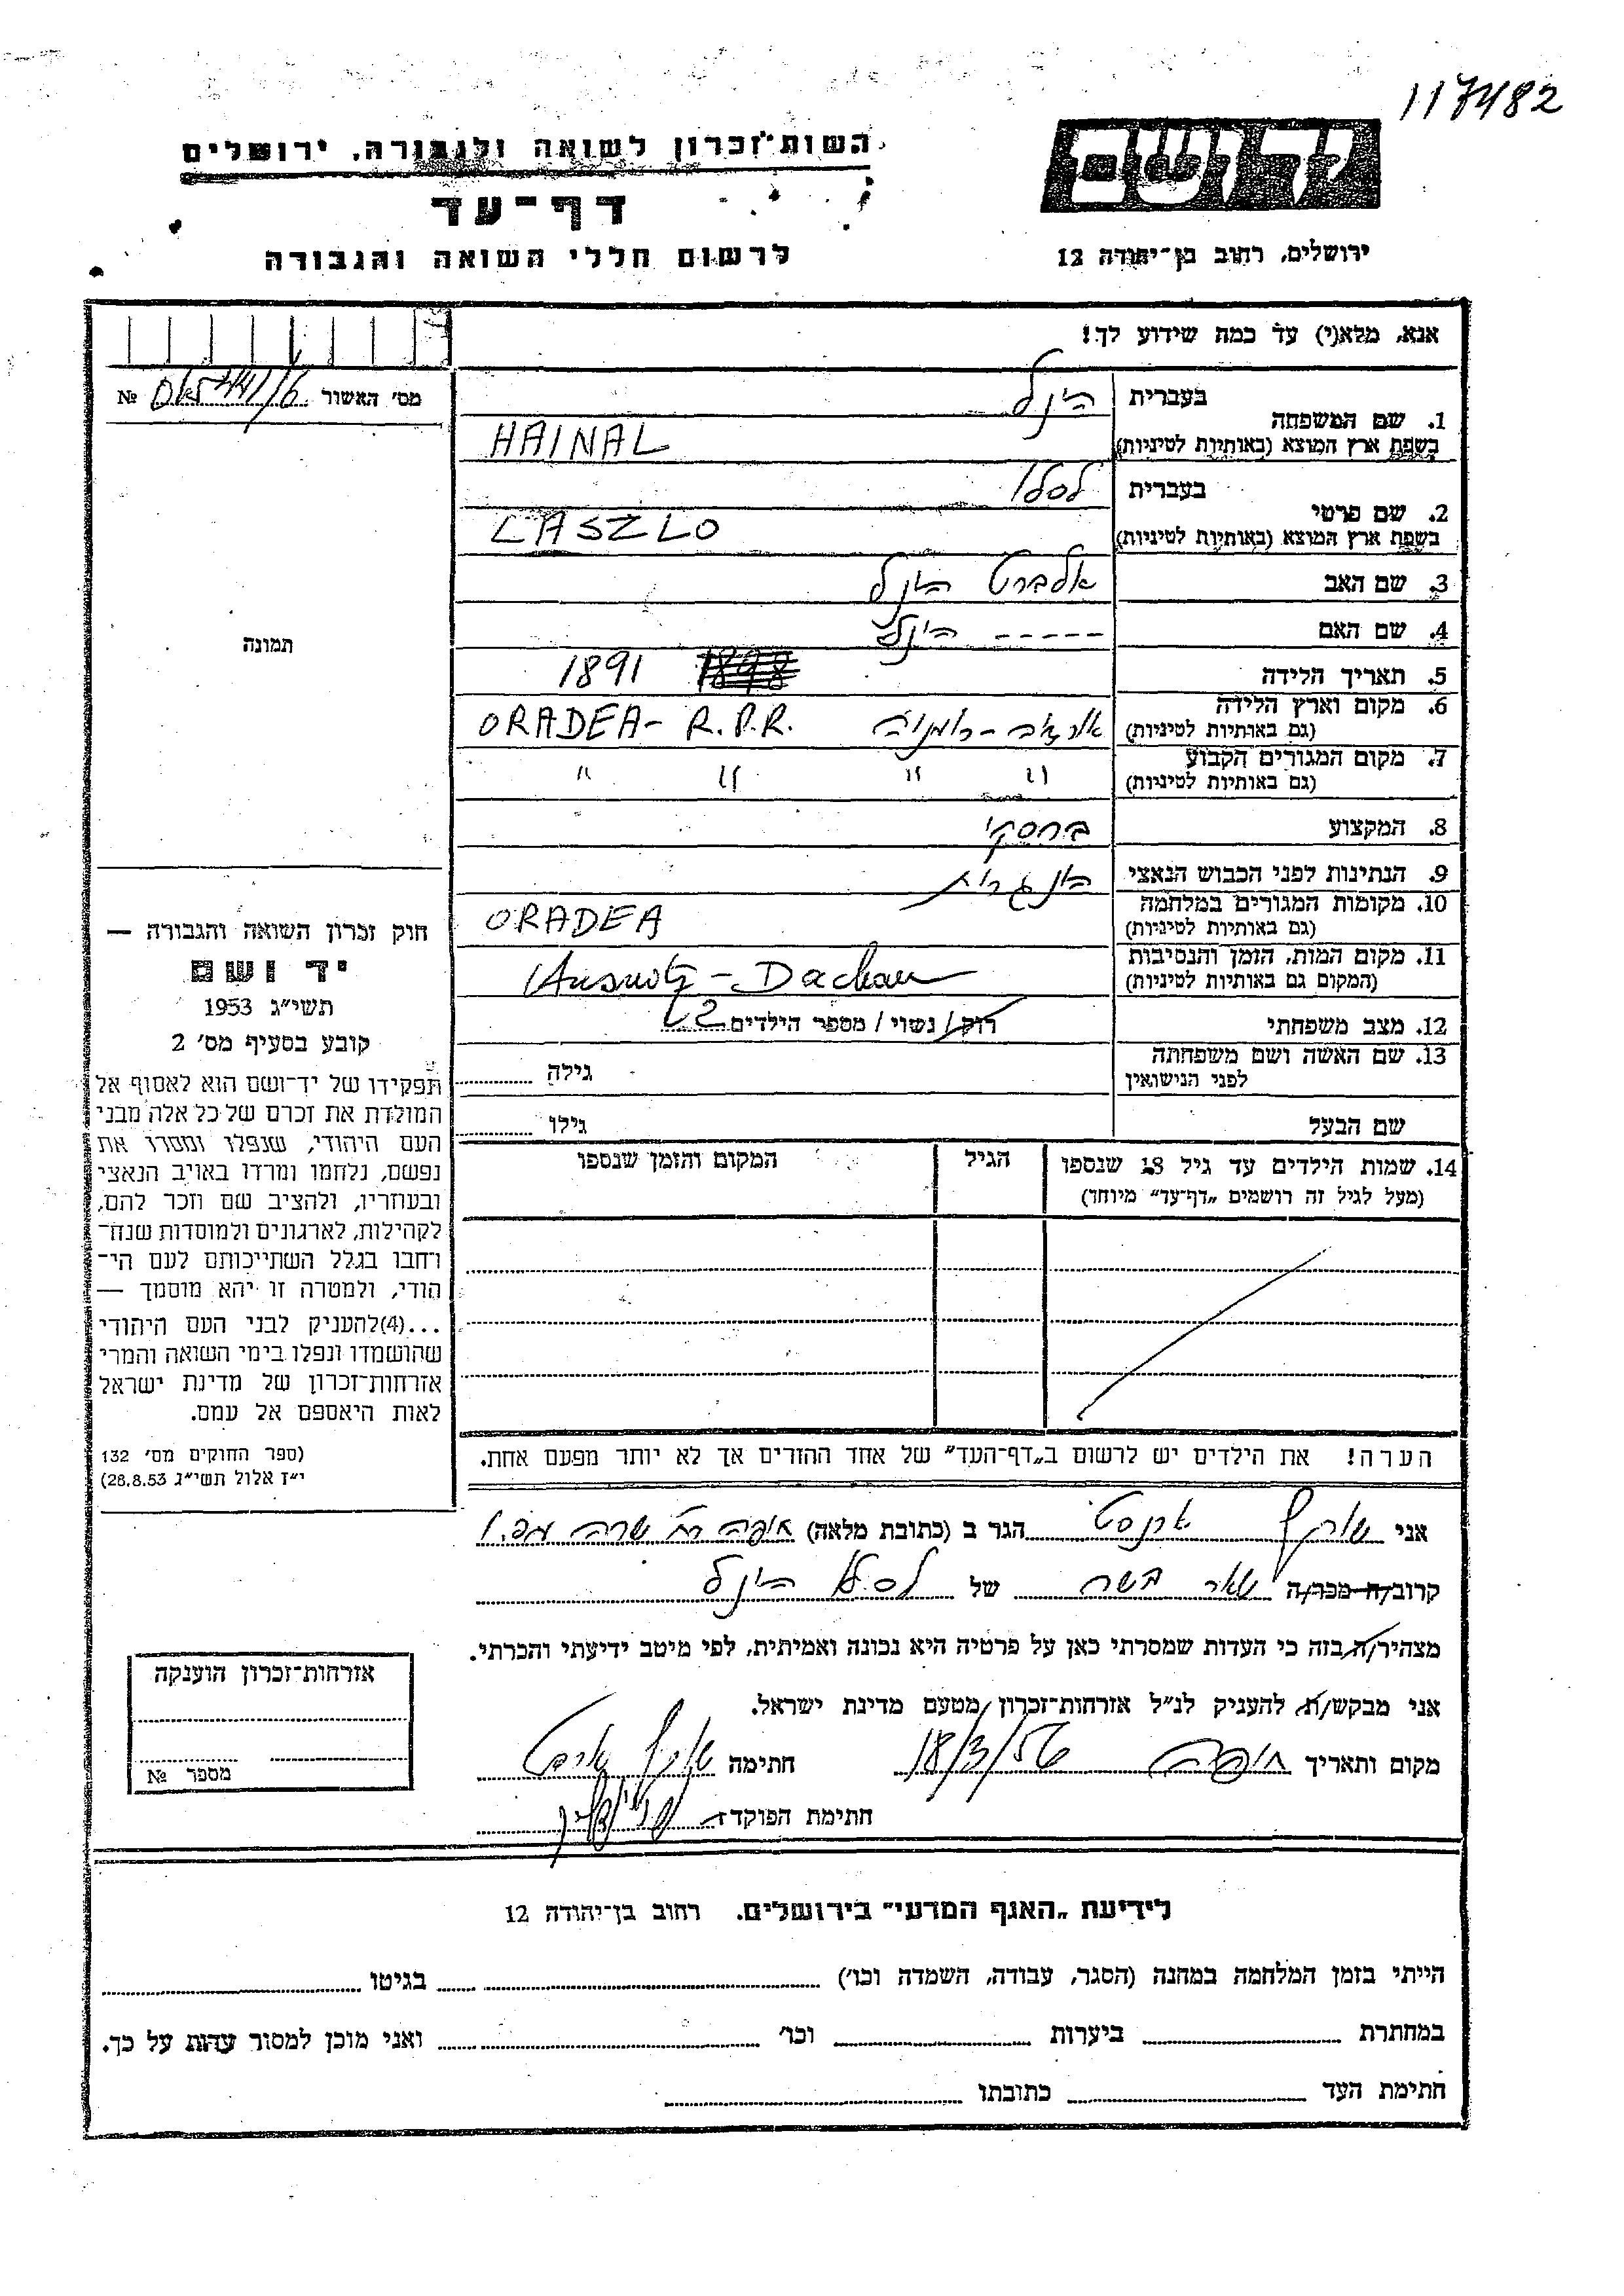 117482
יד ושם
ירושלים, רחוב בן־יהודה 12
רשות־זכרון לשואה ולגבורה, ירושלים
דף־עד
לרשום חללי השואה והגבורה
אנא, מלא(י) עד כמה שידוע לך!
מס׳ האשור №
1. שם המשפחה בעברית הינל
בשפת ארץ המוצא (באותיות לטיניות) HAINAL
2. שם פרטי בעברית לסלו
בשפת ארץ המוצא (באותיות לטיניות) LASZLO
3. שם האב אלברט הינל
4. שם האם ----- הינל
5. תאריך הלידה 1891
6. מקום וארץ הלידה (גם באותיות לטיניות) רומניה ORADEA - R.P.R.
7. מקום המגורים הקבוע (גם באותיות לטיניות) " " " "
8. המקצוע
9. הנתינות לפני הכבוש הנאצי הונגרית
10. מקומות המגורים במלחמה (גם באותיות לטיניות) ORADEA
11. מקום המות, הזמן והנסיבות (המקום גם באותיות לטיניות) - Dachau
12. מצב משפחתי רוק/נשוי/מספר הילדים 2
13. שם האשה ושם משפחתה לפני הנישואין גילה
שם הבעל גילו
14. שמות הילדים עד גיל 18 שנספו (מעל לגיל זה רושמים „דף־עד" מיוחד) הגיל המקום והזמן שנספו
תמונה
חוק זכרון השואה והגבורה —
יד ושם
תשי״ג 1953
קובע בסעיף מס׳ 2
תפקידו של יד־ושם הוא לאסוף אל
המולדת את זכרם של כל אלה מבני
העם היהודי, שנפלו ומסרו את
נפשם, נלחמו ומרדו באויב הנאצי
ובעוזריו, ולהציב שם וזכר להם,
לקהילות, לארגונים ולמוסדות שנח־
רחבו בגלל השתייכותם לעם הי־
הודי, ולמטרה זו יהא מוסמך —
...(4) להעניק לבני העם היהודי
שהושמדו ונפלו בימי השואה והמרי
אזרחות־זכרון של מדינת ישראל
לאות היאספם אל עמם.
(ספר החוקים מס׳ 132
י״ז אלול תשי״ג 28.8.53)
הערה! את הילדים יש לרשום ב„דף־העד" של אחד ההורים אך לא יותר מפעם אחת.
אני הגר ב (כתובת מלאה) חיפה רח׳ שרה
קרוב/ה מכר/ה שאר בשר של לסלו הינל
מצהיר/ה בזה כי העדות שמסרתי כאן על פרטיה היא נכונה ואמיתית, לפי מיטב ידיעתי והכרתי.
אני מבקש/ת להעניק לנ״ל אזרחות־זכרון מטעם מדינת ישראל.
מקום ותאריך חיפה 18/3/56 חתימה
חתימת הפוקד
אזרחות־זכרון הוענקה
מספר №
לידיעת „האגף המדעי" בירושלים, רחוב בן־יהודה 12
הייתי בזמן המלחמה במחנה (הסגר, עבודה, השמדה וכו׳) בגיטו
במחתרת ביערות וכו׳ ואני מוכן למסור עדות על כך.
חתימת העד כתובתו